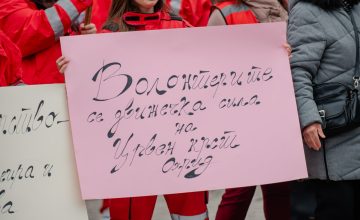 Волонтерите
се движечка сила
на
Црвен крст
Охрид